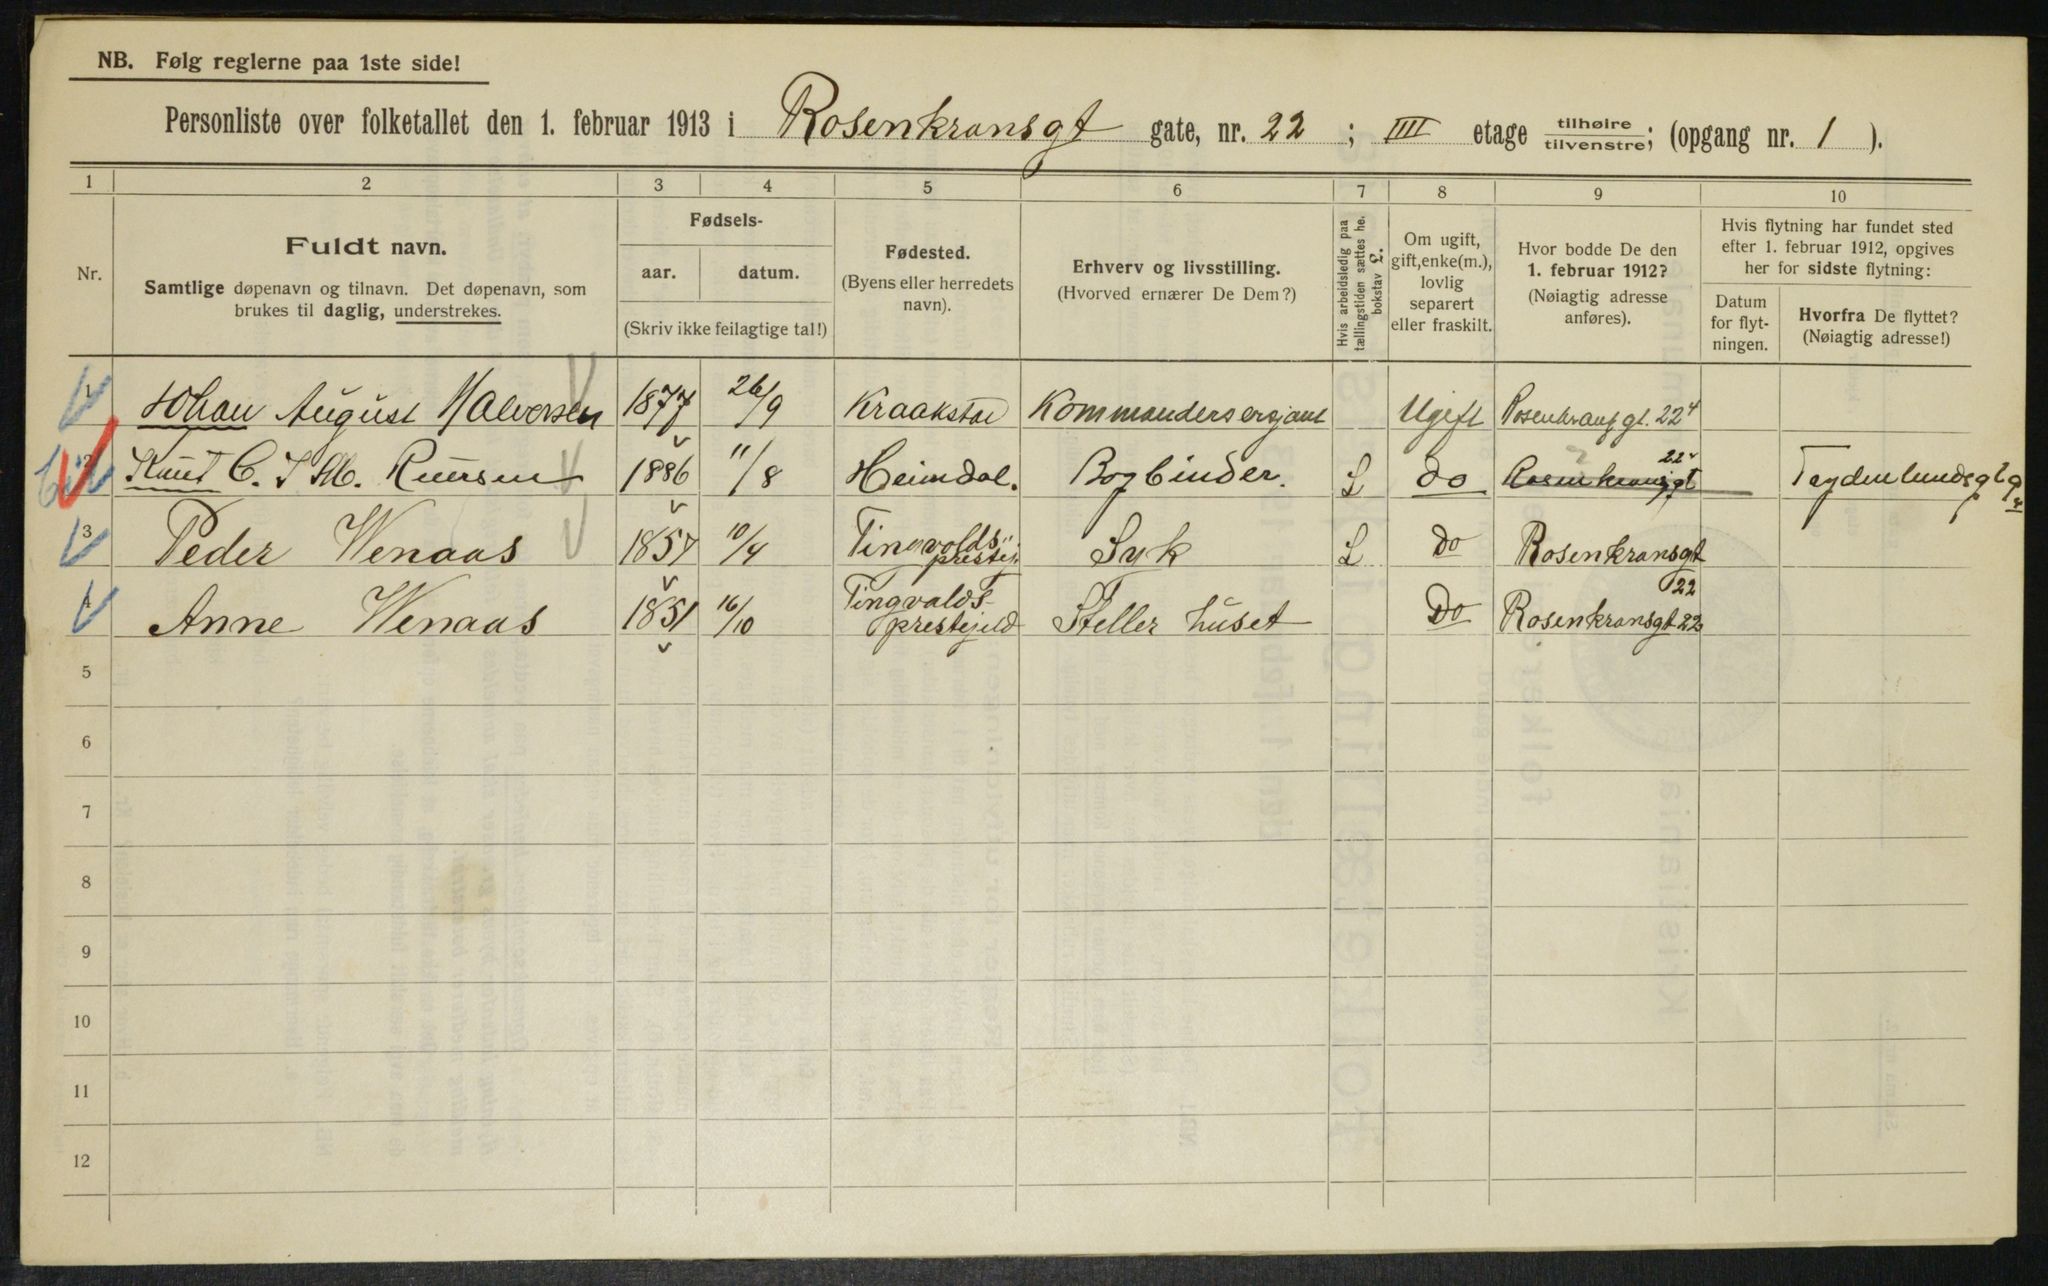 NB. Følg reglerne paa 1ste side!
Personliste over folketallet den 1. februar 1913 i Rosenkransgt gate, nr. 22 ; IIII etage tilhøire/tilvenstre; (opgang nr. 1 ).
1 2 3 4 5 6 7 8 9 10
Nr.
Fuldt navn.
Samtlige døpenavn og tilnavn. Det døpenavn, som
brukes til daglig, understrekes.
Fødsels-
aar. datum.
(Skriv ikke feilagtige tal!)
Fødested.
(Byens eller herredets
navn).
Erhverv og livsstilling.
(Hvorved ernærer De Dem?)
Hvis arbeidsledig paa
tællingstiden sættes he.
bokstav L.
Om ugift,
gift, enke(m.),
lovlig
separert
eller fraskilt.
Hvor bodde De den
1. februar 1912?
(Nøiagtig adresse
anføres).
Hvis flytning har fundet sted
efter 1. februar 1912, opgives
her for sidste flytning:
Datum
for flyt-
ningen.
Hvorfra De flyttet?
(Nøiagtig adresse!)
1 Johan August Halvorsen 1877 26/9 Kraakstad Kommandersersjant Ugift Rosenkransgt. 22 4
2 Knut C. Ruersen 1886 11/8 Heimdal. Bogbinder. L do Rosenkransgt 22
3 Peder Wenaas 1857 10/4 Tingvolds prestej. Syk L Do Rosenkransgt 22
4 Anne Wenaas 1851 16/10 Tingvalds- prestejeld Steller huset Do Rosenkransgt 22
5
6
7
8
9
10
11
12